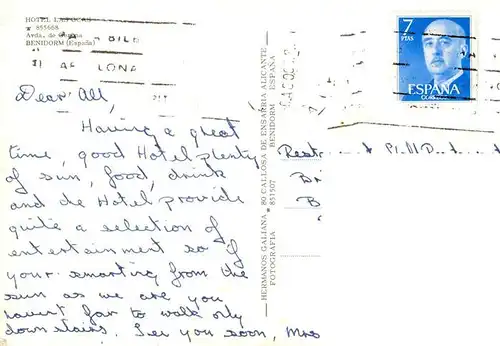 HOTEL LAS OCAS
855668
Avda. de
BENIDORM (España)
7
PTAS
ESPAÑA
CORREOS
Dear All,
Having a great
time, good Hotel plenty
of sun, food, drink
and de Hotel provide
quite a selection of
entertainment so if
your smarting from the
sun as we are you
haven't far to walk only
down stairs. See you soon, Mrs
HERMANOS GALIANA * 89 CALLOSA DE ENSARRIA ALICANTE
FOTOGRAFIA * 851507 BENIDORM ESPAÑA